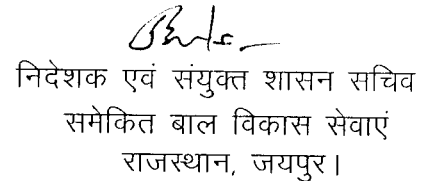 निदेशक एवं संयुक्त शासन सचिव
समेकित बाल विकास सेवाएं
राजस्थान, जयपुर।